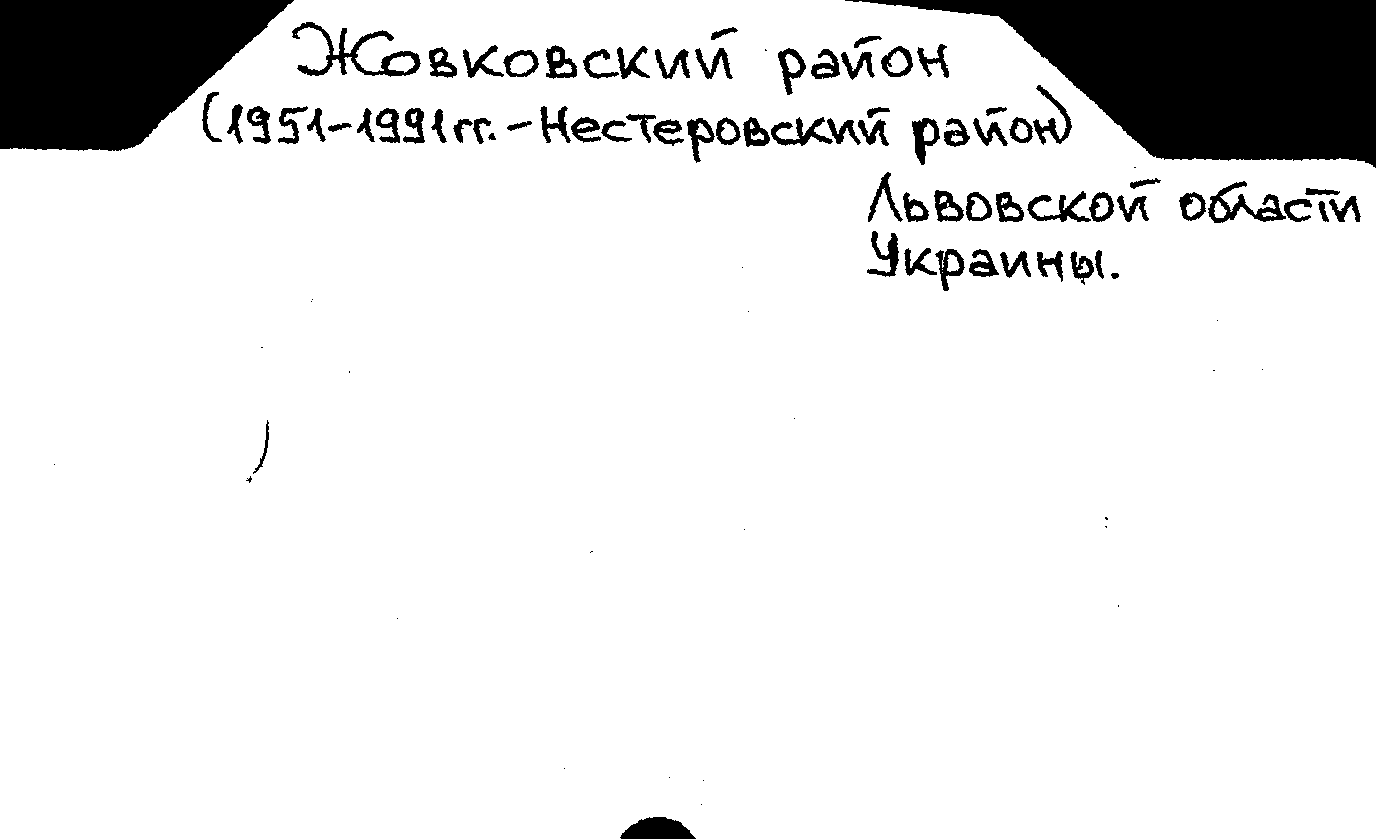 Жовковский район
(1951-1991гг.-Нестеровский район)
Львовской области
Украины.